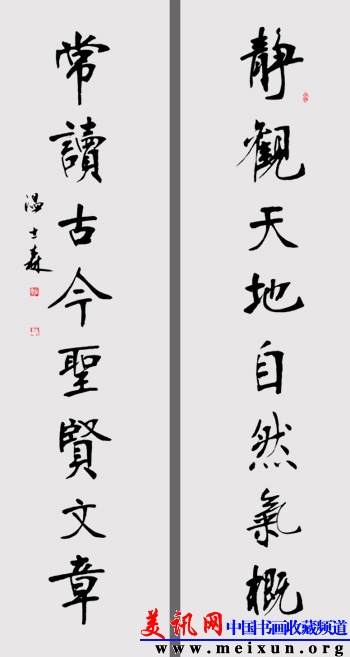 靜觀天地自然氣概
常讀古今聖賢文章
溫士森
美讯网
中国书画收藏频道
www.meixun.org